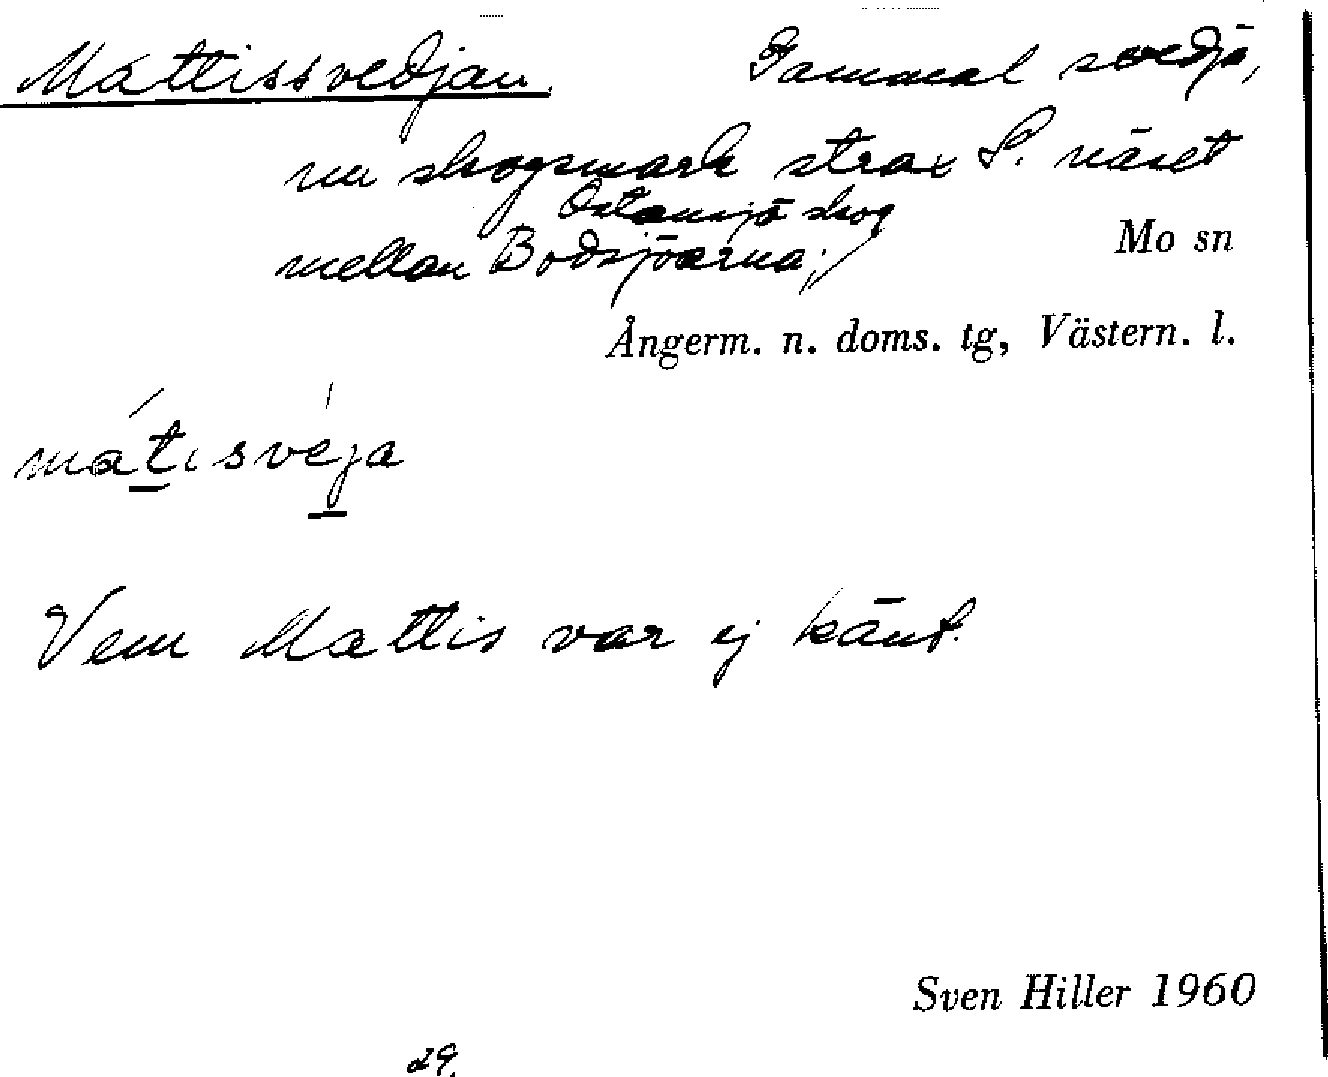 Mattissvedjan. Gammal svedja,
nu skogsmark strax S. näset
Östansjö skog
mellan Bodsjöarna; Mo sn
Ångerm. n. doms. tg, Västern. l.
mátisvéja
Vem Mattis var ej känt.
Sven Hiller 1960
29.